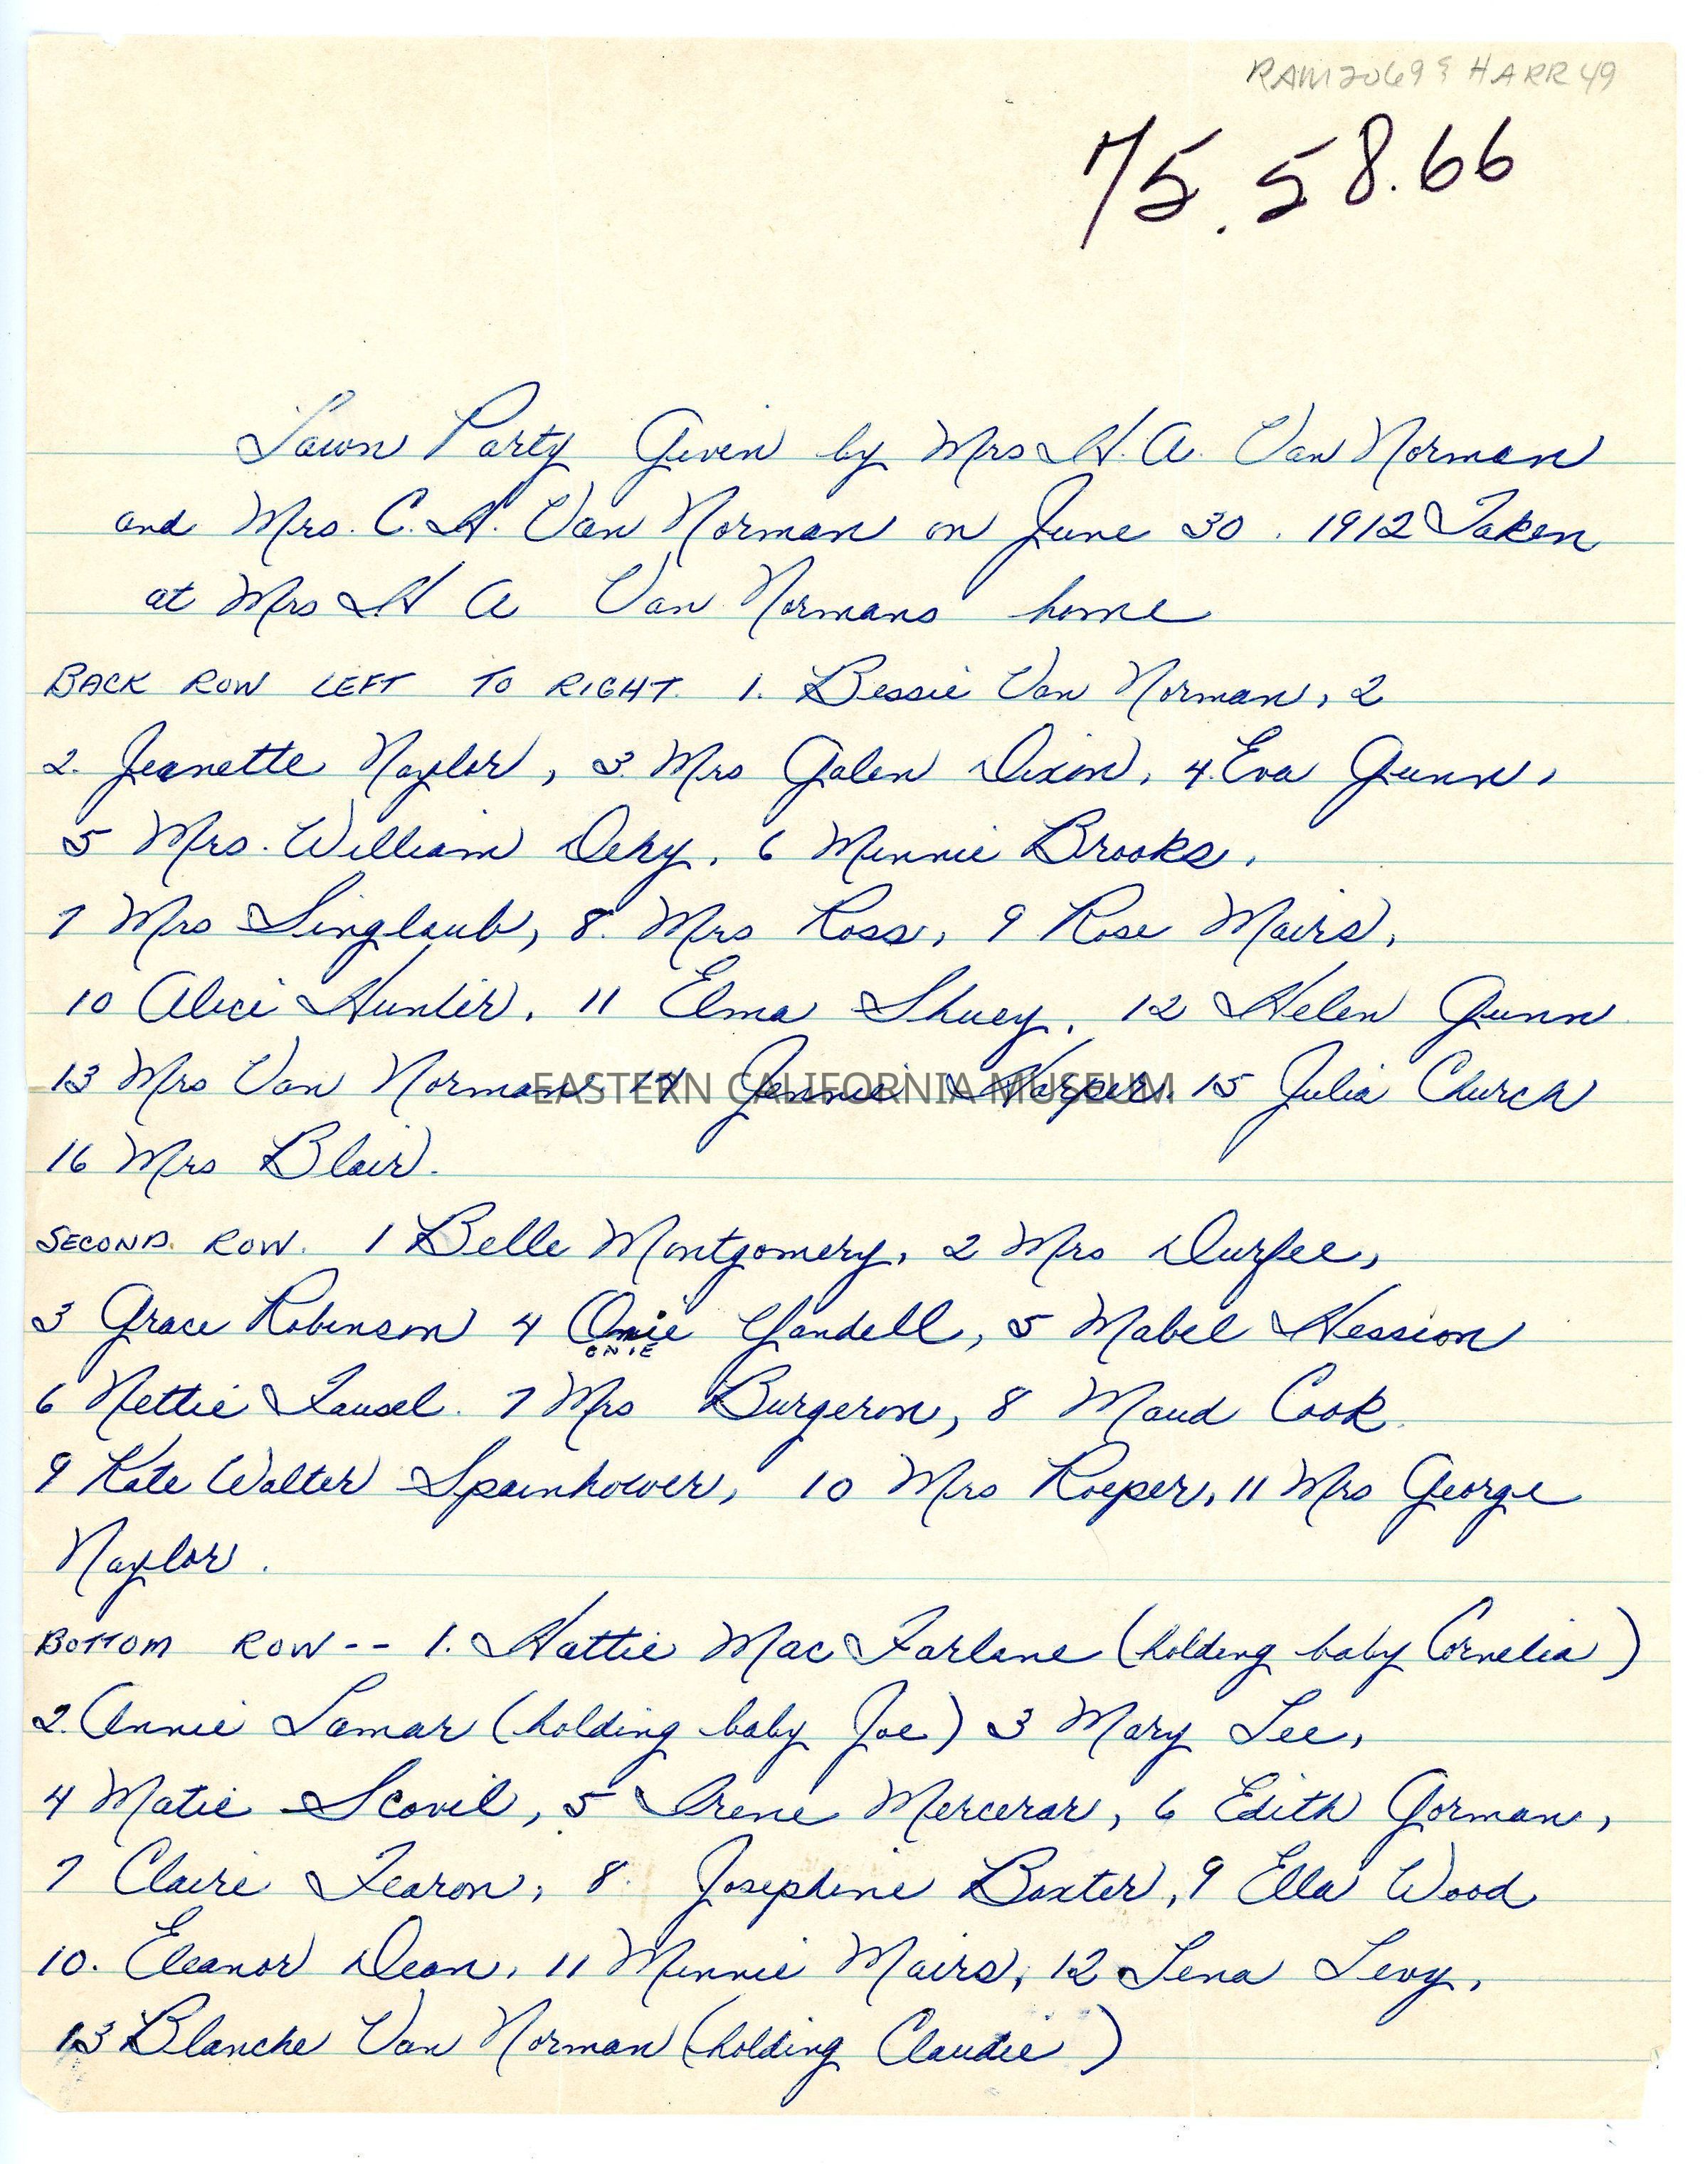 RAM2069 & HARR 49
75.58.66
Lawn Party Given by Mrs H. A. Van Norman
and Mrs. C. H. Van Norman on June 30. 1912 Taken
at Mrs H A Van Normans home
BACK ROW LEFT TO RIGHT. 1. Bessie Van Norman, 2
2. Jeanette Naylor, 3. Mrs Galen Dixon, 4. Eva Gunn,
5 Mrs. William Dehy, 6 Minnie Brooks,
7 Mrs Singlaub, 8. Mrs Ross, 9 Rose Mairs,
10 Alice Hunter, 11 Elma Shuey, 12 Helen Gunn
13 Mrs Van Norman, 14 Jennie Harper, 15 Julia Church
EASTERN CALIFORNIA MUSEUM
16 Mrs Blair.
SECOND ROW. 1 Belle Montgomery, 2 Mrs Durfee,
3 Grace Robinson 4 Onie Yandell, 5 Mabel Hession
ONIE
6 Nettie Fausel. 7 Mrs Burgeron, 8 Maud Cook.
9 Kate Walter Spainhower, 10 Mrs Roeper, 11 Mrs George
Naylor.
BOTTOM ROW-- 1. Hattie Mac Farlane (holding baby Cornelia)
2. Annie Lamar (holding baby Joe) 3 Mary Lee,
4 Matie Scovil, 5 Irene Mercerar, 6 Edith Gorman,
7 Claire Fearon, 8. Josephine Baxter, 9 Ella Wood
10. Eleanor Dean, 11 Minnie Mairs, 12 Lena Levy,
13 Blanche Van Norman (holding Claudie)